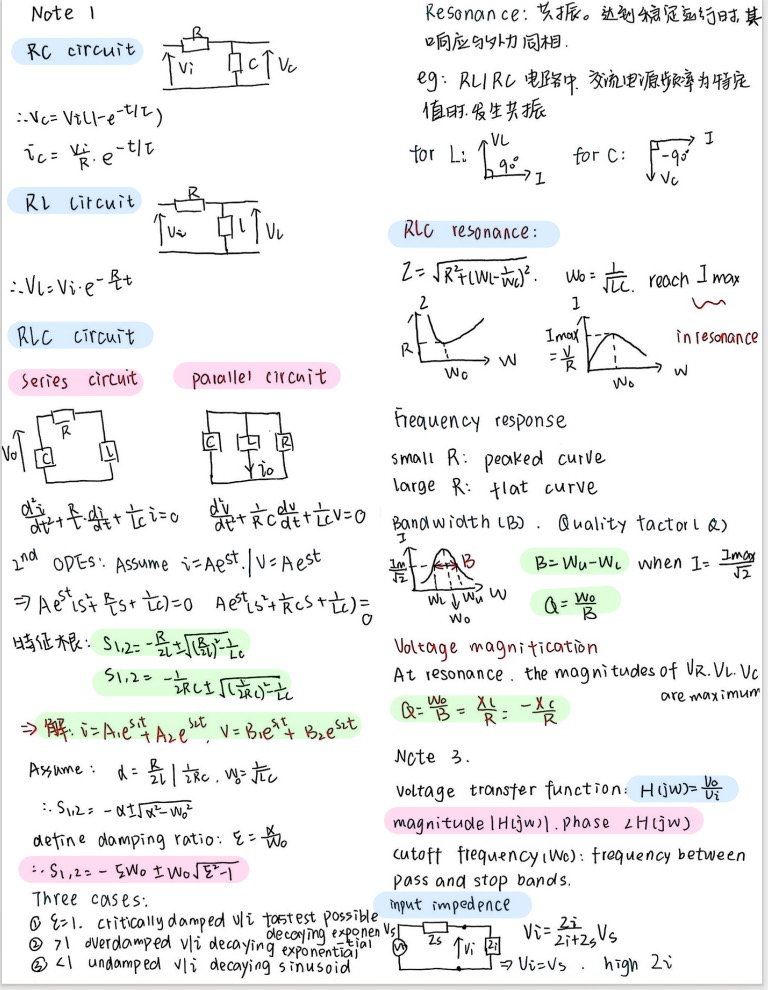 Note 1
RC circuit
R
Vi
C
Vc
∴Vc=Vi(1-e^-t/τ)
ic=Vi/R·e^-t/τ
RL circuit
R
Vi
L
VL
∴VL=Vi·e^-R/L t
RLC circuit
series circuit
parallel circuit
R
V0
C
L
C
L
R
i0
d²i/dt²+R/L·di/dt+1/LC i=0
dv/dt²+1/RC dv/dt+1/LC V=0
2nd ODEs: Assume i=Ae^st.|V=Ae^st
⇒Ae^st(s²+R/L s+1/LC)=0 Ae^st(s²+1/RC s+1/LC)=0
特征根: S1,2=-R/2L±√(R/2L)²-1/LC
S1,2=-1/2RC±√(1/2RC)²-1/LC
⇒解: i=A1e^s1t+A2e^s2t, V=B1e^s1t+B2e^s2t
Assume: α=R/2L|1/2RC, W0=1/√LC
∴S1,2=-α±√α²-W0²
define damping ratio: ξ=α/W0
∴S1,2=-ξW0±W0√ξ²-1
Three cases:
① ξ=1. critically damped v/i fastest possible decaying exponen
② >1 overdamped v/i decaying exponential -tial
③ <1 undamped v/i decaying sinusoid
Resonance: 共振。达到稳定运行时,其
响应与外力同相.
eg: RL/RC 电路中,交流电源频率为特定
值时,发生共振
for L:
VL
90°
I
for C:
I
-90°
Vc
RLC resonance:
Z=√R²+(WL-1/WC)².
W0=1/√LC. reach Imax
Z
R
W0
W
I
Imax
=V/R
W0
W
in resonance
Frequency response
small R: peaked curve
large R: flat curve
Bandwidth(B). Quality factor(Q)
I
Im/√2
B
WL
Wu
W
W0
B=Wu-WL when I=Imax/√2
Q=W0/B
Voltage magnification
At resonance, the magnitudes of VR.VL.VC
are maximum
Q=W0/B=XL/R=-XC/R
Note 3.
voltage transfer function: H(jw)=V0/Vi
magnitude|H(jw)|. phase ∠H(jw)
cutoff frequency(W0): frequency between
pass and stop bands.
input impedence
Vs
Zs
Vi
Zi
Vi=Zi/Zi+Zs Vs
⇒Vi=Vs. high Zi